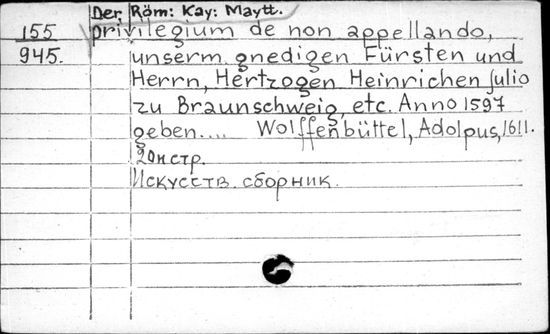 Der Röm: Kay: Maytt.
155 privilegium de non appellando,
945. unserm gnedigen Fürsten und
Herrn, Hertzogen Heinrichen Julio
zu Braunschweig, etc. Anno 1597
geben.... Wolffenbüttel, Adolpus, 1611.
20н стр.
Искусств. сборник.